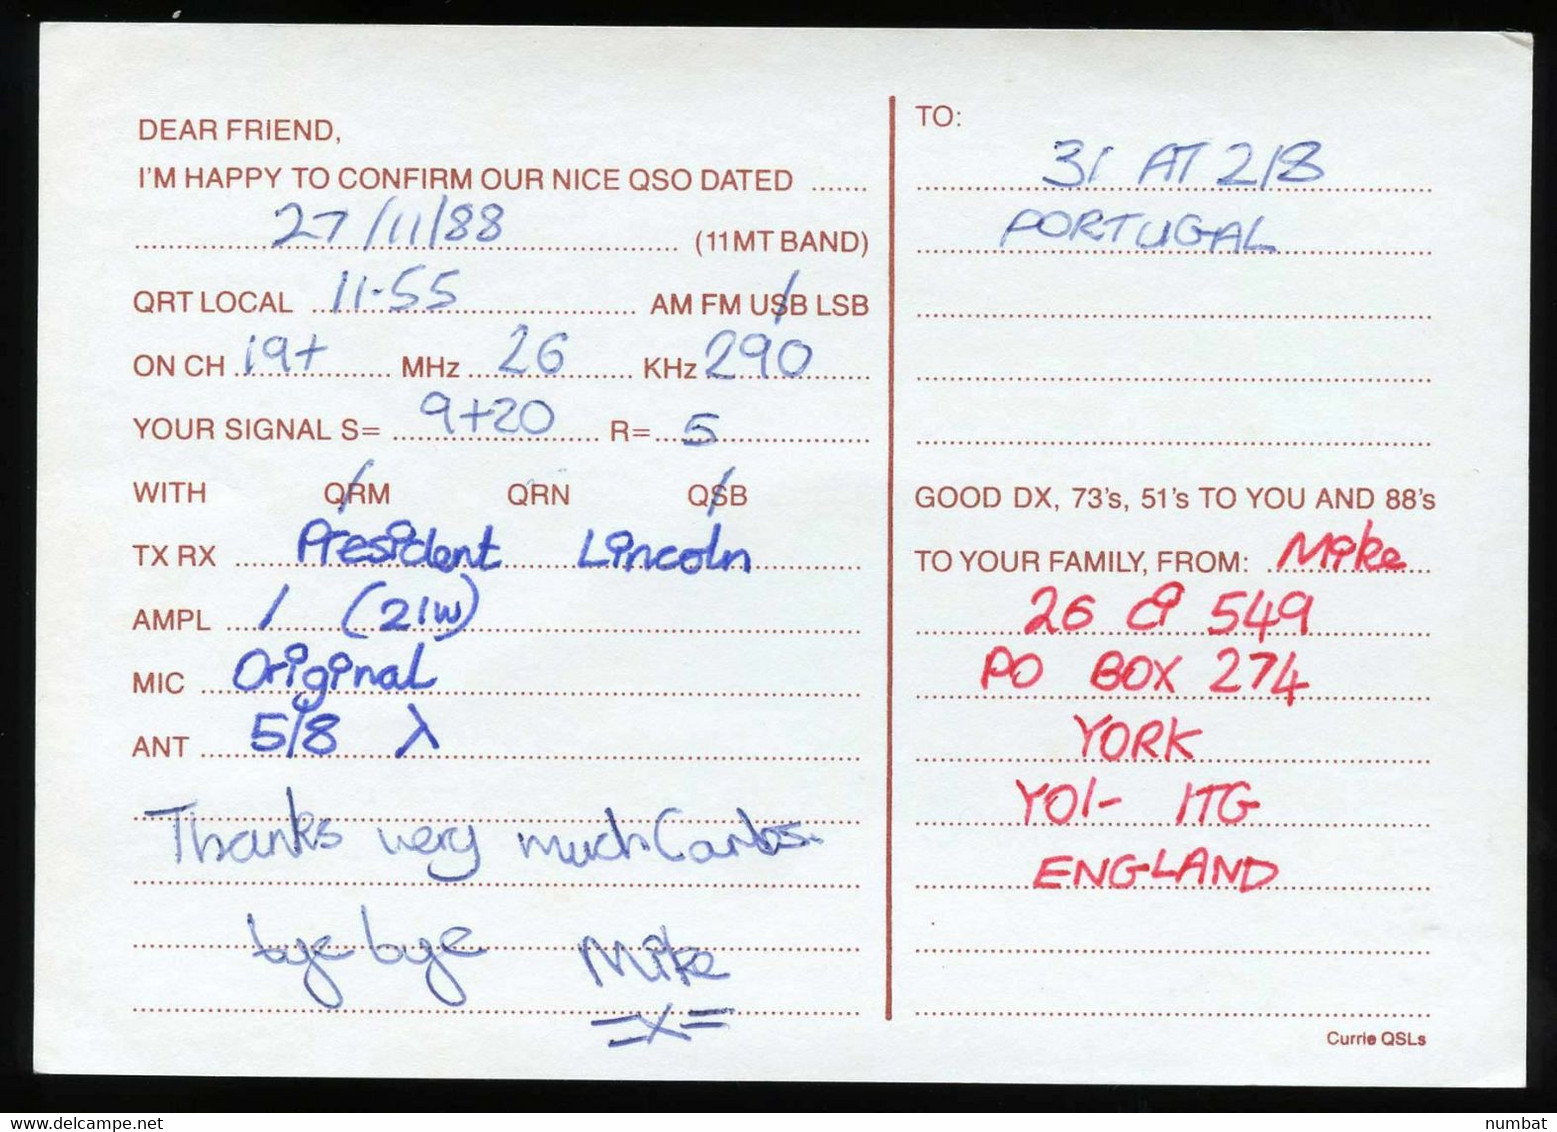 DEAR FRIEND,
I'M HAPPY TO CONFIRM OUR NICE QSO DATED .......
27/11/88 (11MT BAND)
QRT LOCAL 11.55 AM FM USB LSB
ON CH 19+ MHz 26 KHz 290
YOUR SIGNAL S= 9+20 R= 5
WITH QRM QRN QSB
TX RX President Lincoln
AMPL / (21W)
MIC Original
ANT 5/8 λ
Thanks very much Carlos.
bye bye Mike
=X=
TO:
31 AT 218
PORTUGAL
GOOD DX, 73's, 51's TO YOU AND 88's
TO YOUR FAMILY, FROM: Mike
26 CP 549
PO BOX 274
YORK
YO1- 1TG
ENGLAND
Currie QSLs
numbat